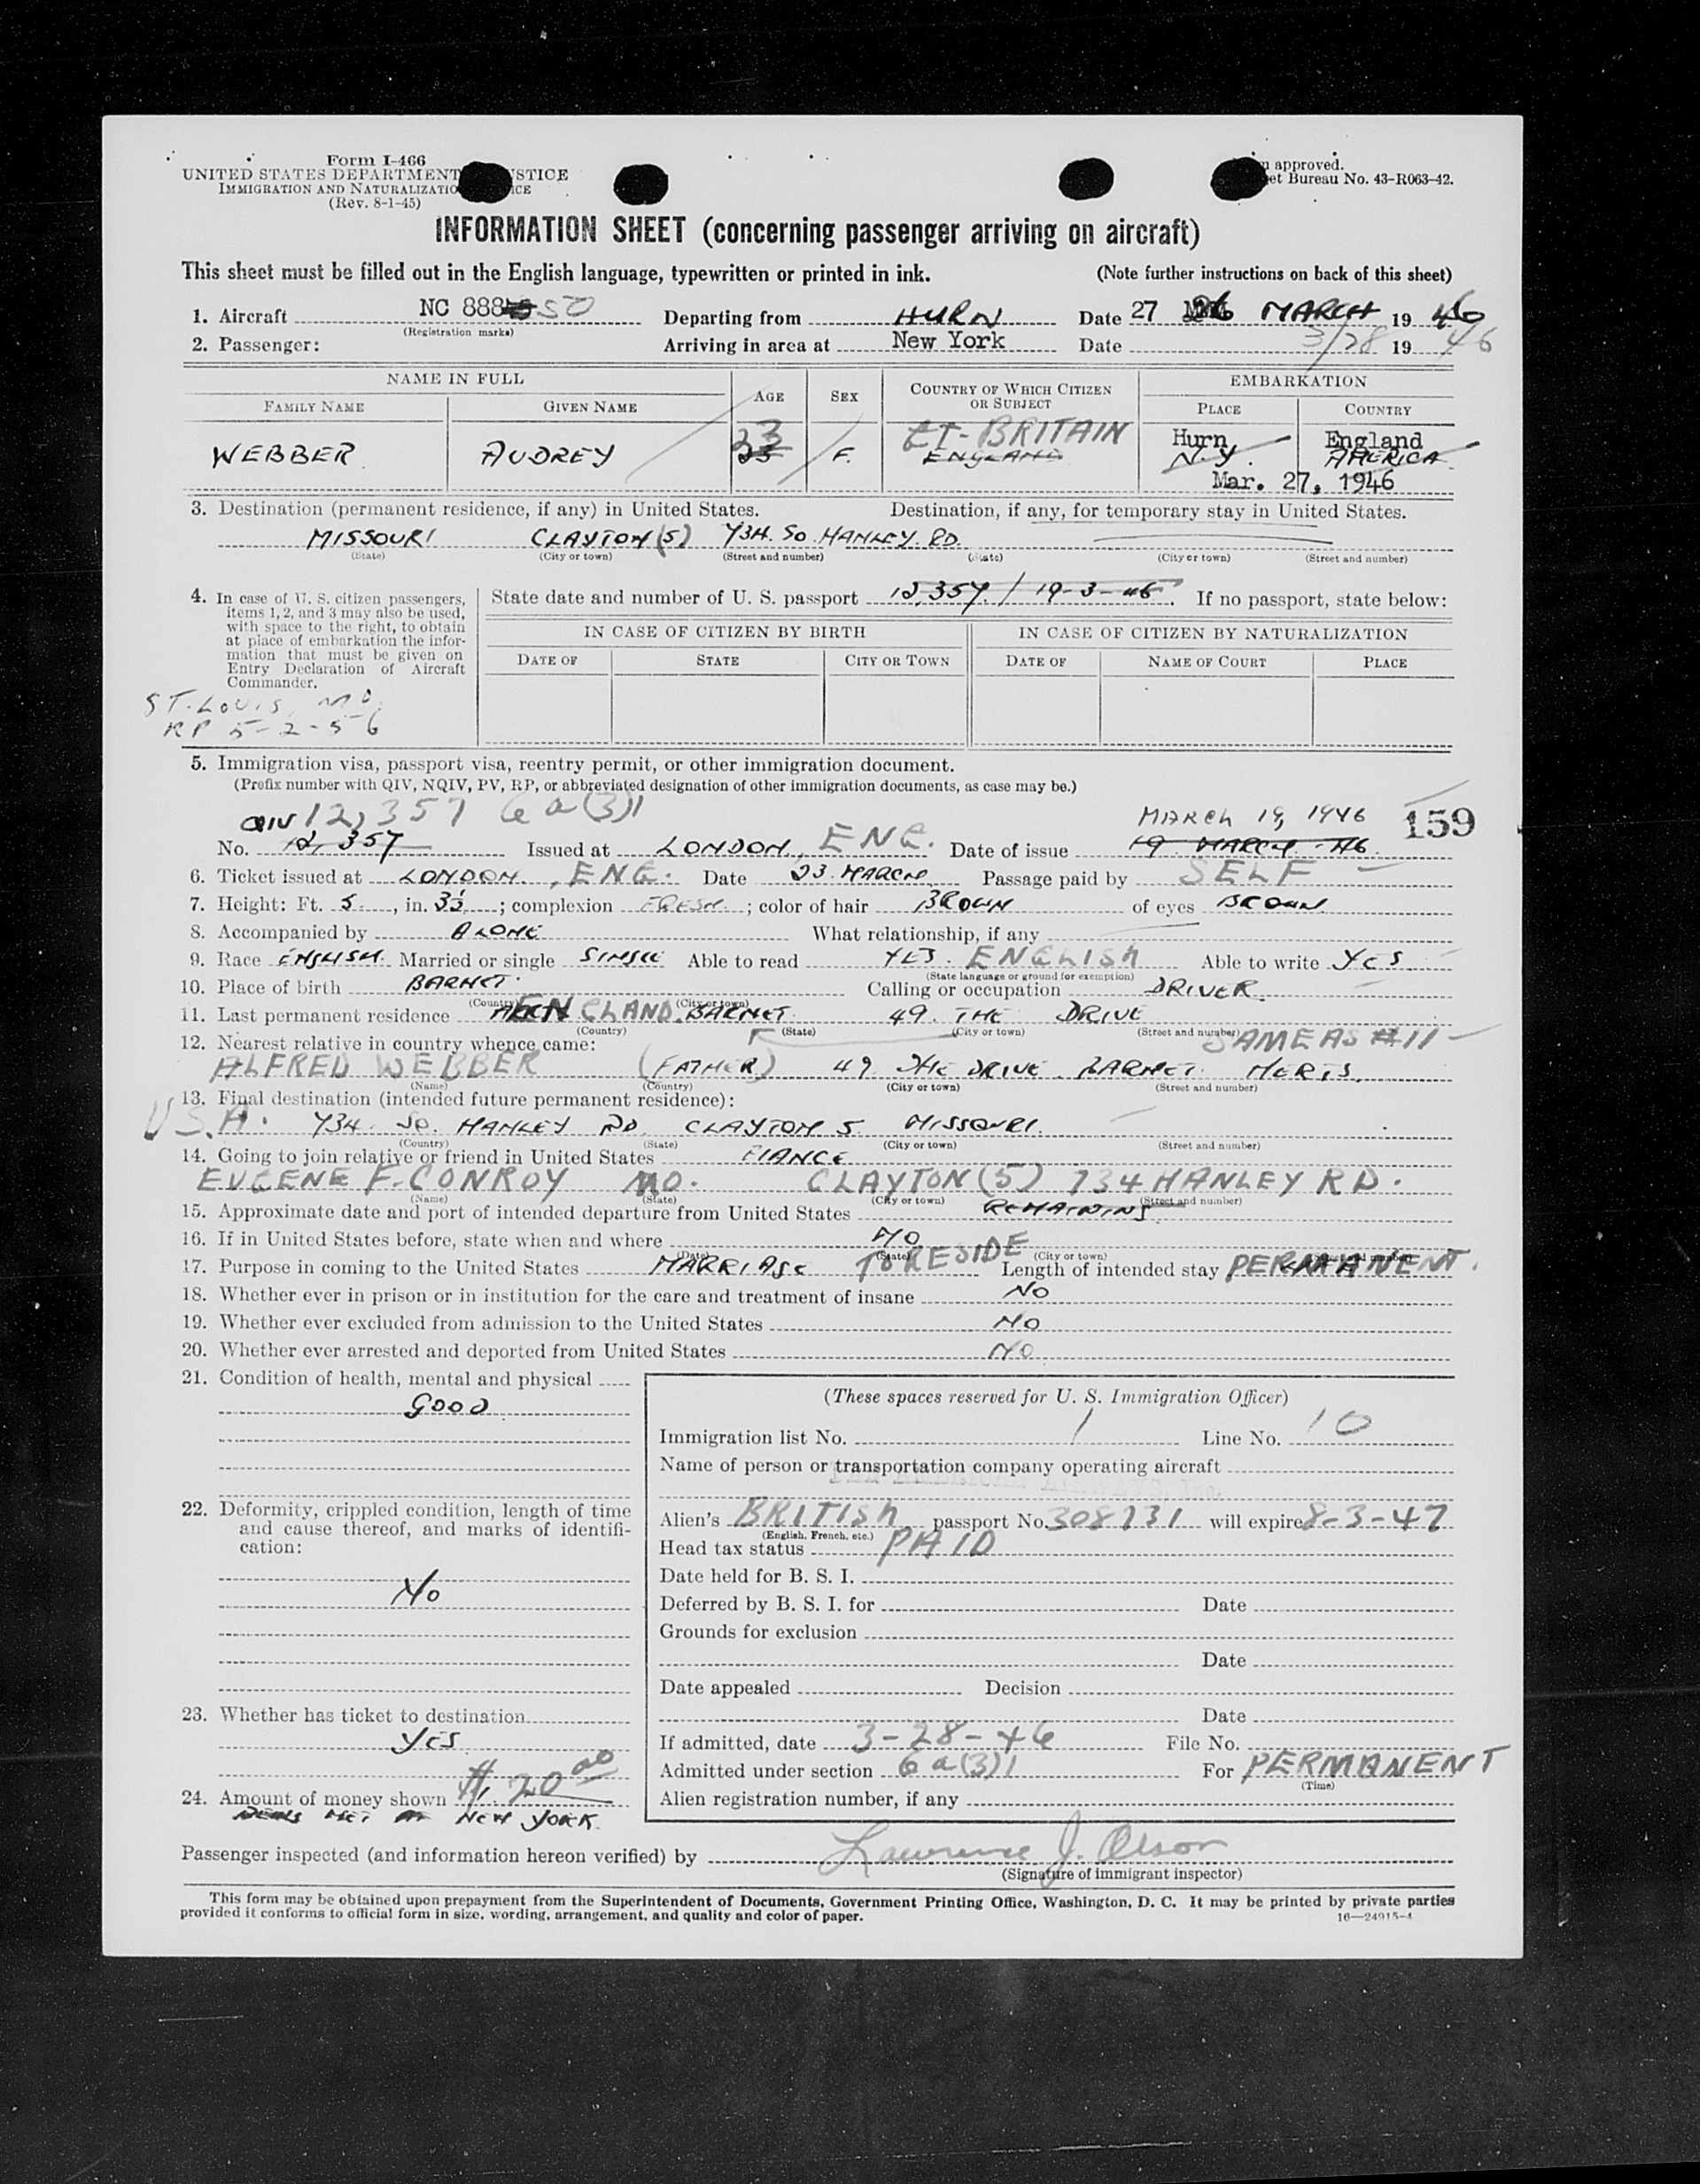 Form I-466
UNITED STATES DEPARTMENT STICE
IMMIGRATION AND NATURALIZATIO ICE
(Rev. 8-1-45)
n approved.
et Bureau No. 43-R063-42.
INFORMATION SHEET (concerning passenger arriving on aircraft)
This sheet must be filled out in the English language, typewritten or printed in ink. (Note further instructions on back of this sheet)
1. Aircraft NC 888 50 Departing from HURN Date 27 26 MARCH 19 46
(Registration marks)
2. Passenger: Arriving in area at New York Date 3/28 19 46
NAME IN FULL AGE SEX COUNTRY OF WHICH CITIZEN OR SUBJECT EMBARKATION
FAMILY NAME GIVEN NAME PLACE COUNTRY
GT-BRITAIN Hurn, England
WEBBER AUDREY 23 F. ENGLAND N.Y. AMERICA
Mar. 27, 1946
3. Destination (permanent residence, if any) in United States. Destination, if any, for temporary stay in United States.
MISSOURI CLAYTON (5) 734. SO. HANLEY. RD.
(State) (City or town) (Street and number) (State) (City or town) (Street and number)
4. In case of U. S. citizen passengers, items 1, 2, and 3 may also be used, with space to the right, to obtain at place of embarkation the information that must be given on Entry Declaration of Aircraft Commander.
State date and number of U. S. passport 12,357. / 19-3-46. If no passport, state below:
IN CASE OF CITIZEN BY BIRTH IN CASE OF CITIZEN BY NATURALIZATION
DATE OF STATE CITY OR TOWN DATE OF NAME OF COURT PLACE
ST. LOUIS, MO.
RP 5-2-56
5. Immigration visa, passport visa, reentry permit, or other immigration document.
(Prefix number with QIV, NQIV, PV, RP, or abbreviated designation of other immigration documents, as case may be.)
QIV 12,357 6a(3)1 MARCH 19, 1946 159
No. 12,357 Issued at LONDON, ENG. Date of issue 19. MARCH. 46.
6. Ticket issued at LONDON, ENG. Date 23. MARCH Passage paid by SELF
7. Height: Ft. 5, in. 3½; complexion FRESH; color of hair BROWN of eyes BROWN
8. Accompanied by ALONE What relationship, if any
9. Race ENGLISH. Married or single SINGLE Able to read YES. ENGLISH Able to write YES.
(State language or ground for exemption)
10. Place of birth BARNET. Calling or occupation DRIVER.
(Country) (City or town)
11. Last permanent residence ENGLAND. BARNET. 49. THE DRIVE
(Country) (State) (City or town) (Street and number)
12. Nearest relative in country whence came: SAME AS #11
ALFRED WEBBER (FATHER) 49 THE DRIVE. BARNET. HERTS.
(Name) (Country) (City or town) (Street and number)
13. Final destination (intended future permanent residence):
U.S.A. 734. SO. HANLEY RD. CLAYTON. 5. MISSOURI.
(Country) (State) (City or town) (Street and number)
14. Going to join relative or friend in United States FIANCE
EUGENE F. CONROY MO. CLAYTON (5) 734 HANLEY RD.
(Name) (State) (City or town) (Street and number)
15. Approximate date and port of intended departure from United States REMAINING
16. If in United States before, state when and where NO
(Date) (State) (City or town) (Street and number)
17. Purpose in coming to the United States MARRIAGE TO RESIDE Length of intended stay PERMANENT.
18. Whether ever in prison or in institution for the care and treatment of insane NO
19. Whether ever excluded from admission to the United States NO
20. Whether ever arrested and deported from United States NO
21. Condition of health, mental and physical
GOOD
22. Deformity, crippled condition, length of time and cause thereof, and marks of identification:
NO
23. Whether has ticket to destination
YES
24. Amount of money shown $20 00
MET NEW YORK
(These spaces reserved for U. S. Immigration Officer)
Immigration list No. 1 Line No. 10
Name of person or transportation company operating aircraft
Alien's BRITISH passport No. 308731 will expire 8-3-47
(English, French, etc.)
Head tax status PAID
Date held for B. S. I.
Deferred by B. S. I. for Date
Grounds for exclusion
Date
Date appealed Decision
Date
If admitted, date 3-28-46 File No.
Admitted under section 6a(3)1 For PERMANENT
(Time)
Alien registration number, if any
Passenger inspected (and information hereon verified) by Lawrence J. Olson
(Signature of immigrant inspector)
This form may be obtained upon prepayment from the Superintendent of Documents, Government Printing Office, Washington, D. C. It may be printed by private parties
provided it conforms to official form in size, wording, arrangement, and quality and color of paper. 16—24915-1